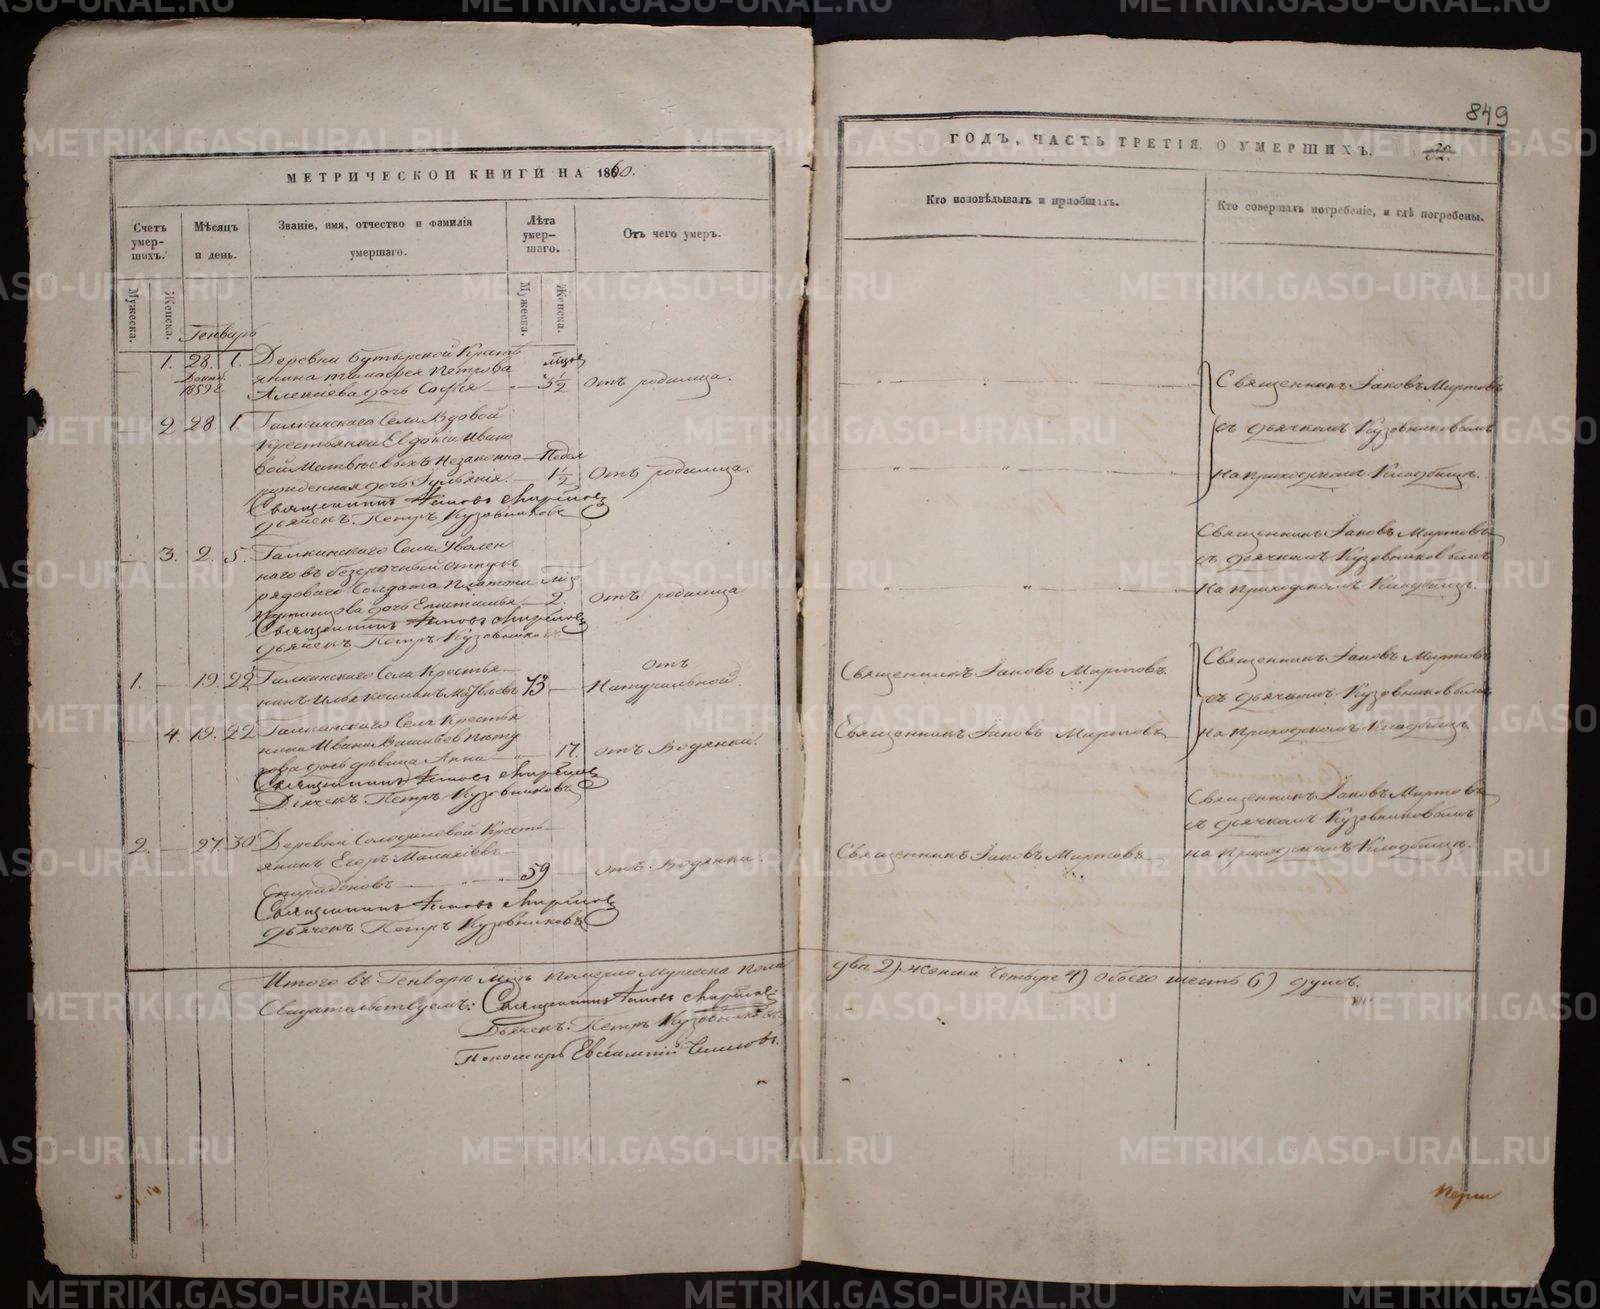 849
МЕТРИЧЕСКОЙ КНИГИ НА 1860.
ГОДЪ, ЧАСТЬ ТРЕТІЯ, О УМЕРШИХЪ.
Счетъ умер-шихъ.
Мѣсяцъ и день.
Званіе, имя, отчество и фамилія умершаго.
Лѣта умер-шаго.
Отъ чего умеръ.
Кто исповѣдывалъ и пріобщалъ.
Кто совершалъ погребеніе, и гдѣ погребены.
Мужеска.
Женска.
Мужеска.
Женска.
Генварь
1. 28. 1. Деревни Бутырской Кресть
Декаб. 1859 г.
янина Тимофея Петрова
дочь Софія 3½ отъ родимца.
Священникъ Іаковъ Мартовъ
съ дьячкомъ Кузовниковымъ
на приходскомъ Кладбищѣ.
2 28 1. Галкинскаго Села Вдовой
Крестьянки Евдокіи Ивано
вой Матвѣевыхъ Незаконно Недел
рожденная дочь 1½ отъ родимца.
Священникъ Іаковъ Мартовъ
Дьячекъ Петръ Кузовниковъ
3. 2. 5. Галкинскаго Села Уволен
наго въ безсрочный отпускъ
рядоваго Солдата Платона
дочь 2. отъ родимца
Священникъ Іаковъ Мартовъ
дьячекъ Петръ Кузовниковъ
Священникъ Іаковъ Мартовъ
съ дьячкомъ Кузовниковымъ
на приходскомъ Кладбищѣ.
1. 19. 22 Галкинскаго Села Крестья
нинъ Илья 73 отъ Натуральной.
Священникъ Іаковъ Мартовъ
Священникъ Іаковъ Мартовъ
съ дьячкомъ Кузовниковымъ
на приходскомъ Кладбищѣ
4. 19. 22 Галкинскаго Села Крестья
нина Ивана
дочь дѣвица Анна 17. отъ Водянки.
Священникъ Іаковъ Мартовъ
Священникъ Іаковъ Мартовъ
Дьячекъ Петръ Кузовниковъ
2. 27. 30 Деревни Солодиловой Кресть
янинъ Егоръ
Спиридоновъ 59 отъ Водянки.
Священникъ Іаковъ Мартовъ
Священникъ Іаковъ Мартовъ
съ дьячкомъ Кузовниковымъ
на приходскомъ Кладбищѣ.
Священникъ Іаковъ Мартовъ
дьячекъ Петръ Кузовниковъ
Итого въ Генварѣ м-цѣ померло Мужеска пола
два 2) женска Четыре 4) обоего шесть 6) душъ.
Свидѣтельствуемъ: Священникъ Іаковъ Мартовъ
Дьячекъ: Петръ Кузовниковъ
Пономарь Евѳимій
METRIKI.GASO-URAL.RU